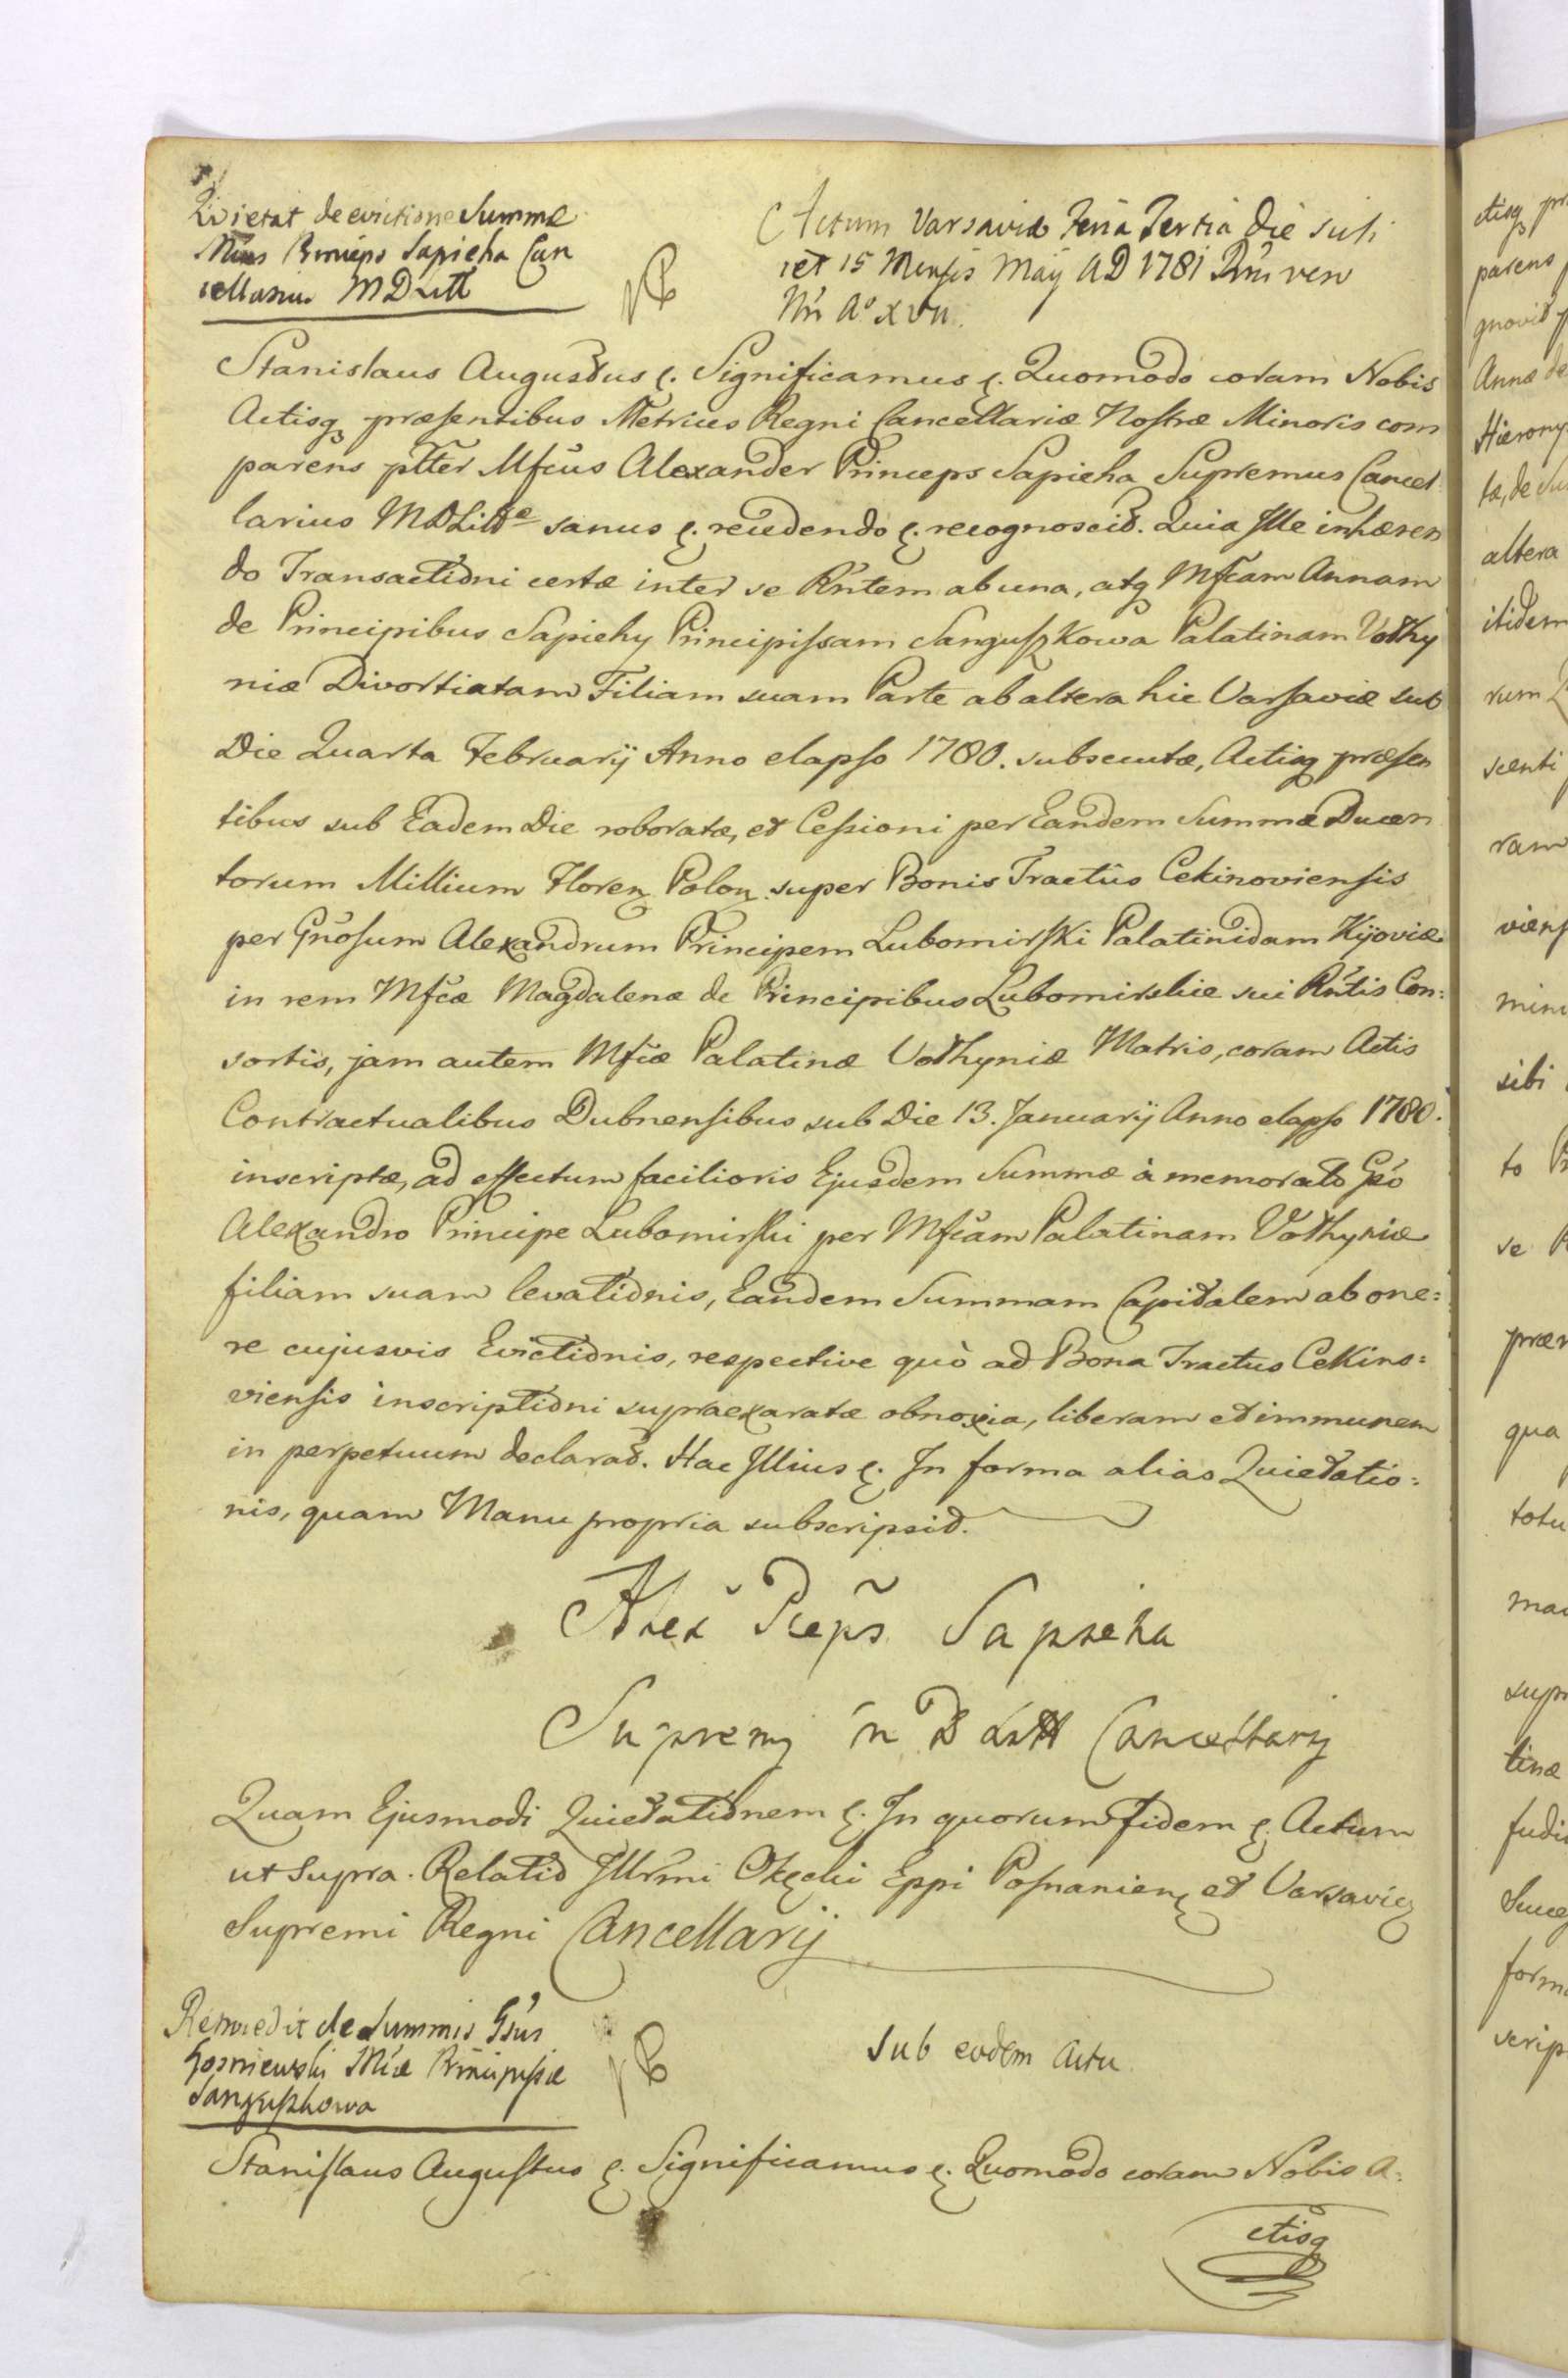 Quietat de evictione Summæ
Mcus Princeps Sapieha Can
cellarius M D Litt
Actum Varsaviæ Feria Tertia die scili
cet 15 Mensis Maÿ AD 1781 Rni vero
Nri Aº XVII.
Stanislaus Augustus ę. Significamus ę. Quomodo coram Nobis
Actisq præsentibus Metrices Regni Cancellariæ Nostræ Minoris com
parens psltter Mfcus Alexander Princeps Sapieha Supremus Cancel
larius MDLitt sanus ę. recedendo ę. recognoscit. Quia Ille inhæren
do Transactioni certæ inter se Rntem ab una, atq Mfcam Annam
de Principibus Sapiehy Principissam Sanguszkowa Palatinam Volhy
niæ Divortiatam Filiam suam Parte ab altera hic Varsaviæ sub
Die Quarta Februarÿ Anno elapso 1780. subsecutæ, Actisq præsen
tibus sub Eadem Die roboratæ, et Cessioni per Eandem Summæ Ducen
torum Millium Floren Polon. super Bonis Tractûs Cekinoviensis
per Gnosum Alexandrum Principem Lubomirski Palatinidam Kijoviæ
in rem Mfcæ Magdalenæ de Principibus Lubomirskie sui Rntis Con:
sortis, jam autem Mfcæ Palatinæ Volhyniæ Matris, coram Actis
Contractualibus Dubnensibus sub Die 13. Januarÿ Anno elapso 1780.
inscriptæ, ad effectum facilioris Ejusdem Summæ à memorato Gso
Alexandro Principe Lubomirski per Mfcam Palatinam Volhyniæ
filiam suam levationis, Eandem Summam Capitalem ab one:
re cujusvis Evictionis, respective quò ad Bona Tractus Cekino:
viensis inscriptioni supraexaratæ obnoxia, liberam et immunem
in perpetuum declarat. Hac Illius ę. In forma alias Quietatio:
nis, quam Manu propria subscripsit.
Alex Pceps Sapieha
Supremÿ M D Litt Cancellarÿ
Quam Ejusmodi Quietationem ę. In quorum fidem ę. Actum
ut supra. Relatio Illrmi Okęcki Eppi Posnanien et Varsavien
Supremi Regni Cancellarÿ
de Summis Gsus
Mcæ Principissæ
Sanguszkowa
Sub eodem Actu
Stanislaus Augustus ę. Significamus ę. Quomodo coram Nobis A:
ctisq